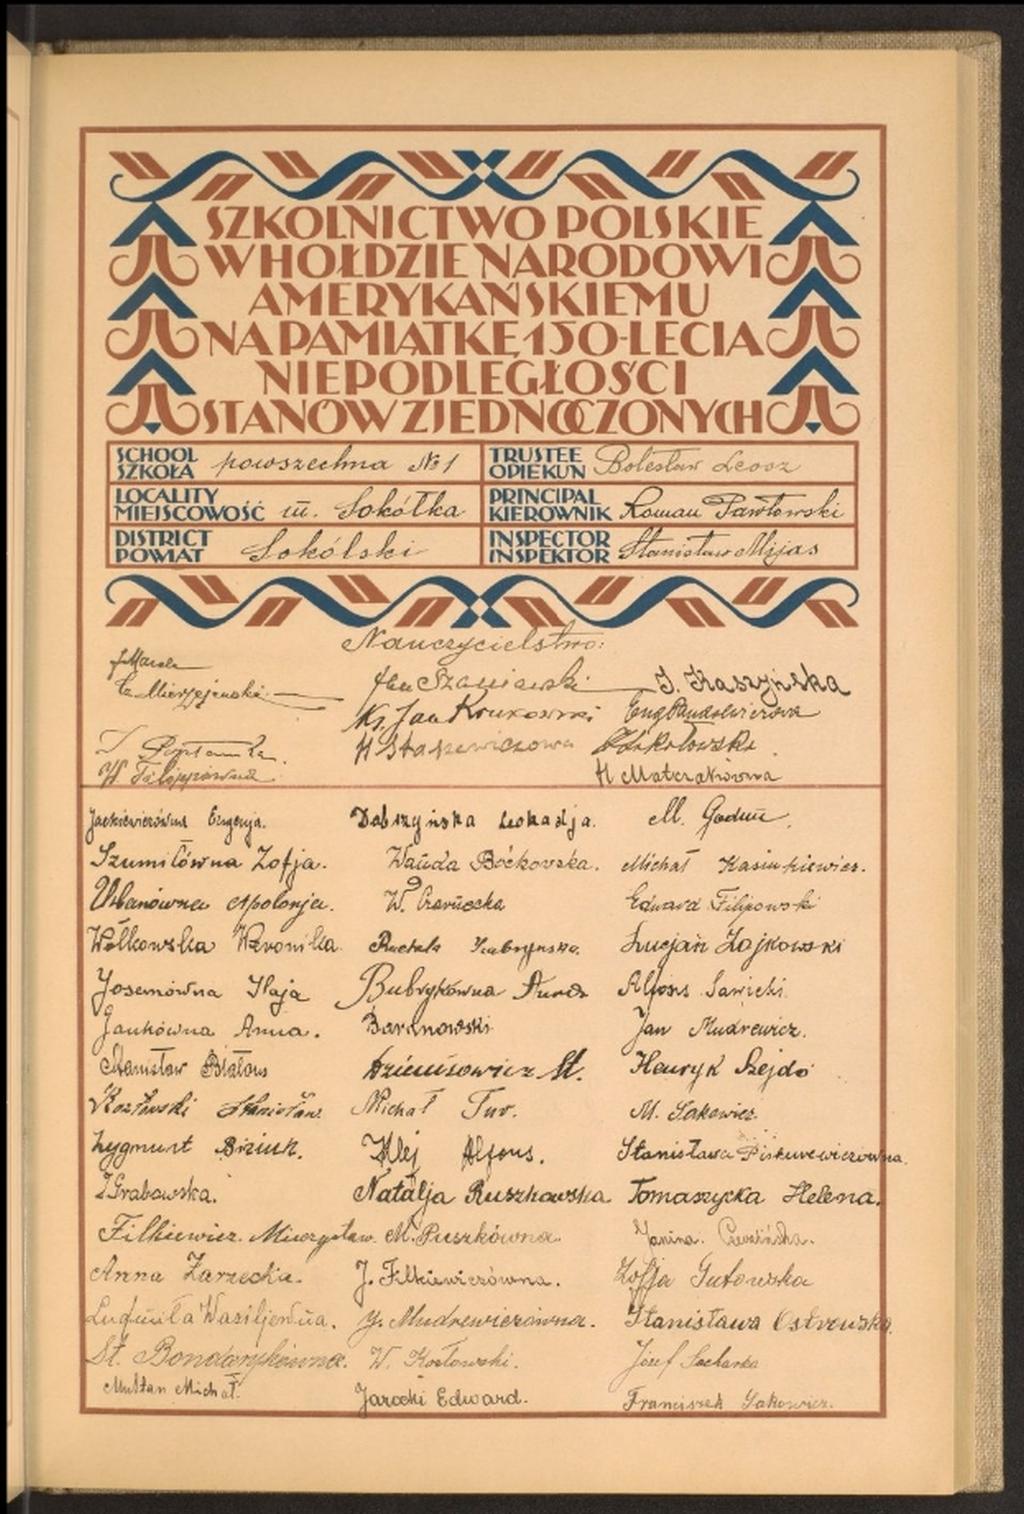 SZKOLNICTWO POLSKIE
W HOŁDZIE NARODOWI
AMERYKAŃSKIEMU
NA PAMIĄTKĘ 150-LECIA
NIEPODLEGŁOŚCI
STANÓW ZJEDNOCZONYCH
SCHOOL SZKOŁA powszechna №1
TRUSTEE OPIEKUN Bolesław Leosz
LOCALITY MIEJSCOWOŚĆ m. Sokółka
PRINCIPAL KIEROWNIK Roman Pawłowski
DISTRICT POWIAT Sokólski
INSPECTOR INSPEKTOR Stanisław Mijas
Nauczycielstwo:
Jan Szaniawski
J. Kaszyńska
Ks. Jan Krukowski
H Stasiewiczowa
W. Filipówna
Jackiewiczówna Eugenja.
Dobrzyńska Leokadja.
M. Godun
Szumiłówna Zofja.
Wanda Boćkowska.
Michał Kasiukiewicz.
Urbanówna Apolonja.
W. Czarnecka
Edward Filipowski
Wołkowska Weronika
Lucjan Zajkowski
Josemówna Haja
Bubrykówna Anna
Alfons Sawicki
Jankówna Anna.
Baranowski
Jan Mudrewicz.
Stanisław Białous
St.
Henryk Szejdo
Kozłowski Stanisław
Michał Tur.
M. Sakowicz
Zygmunt Biziuk.
Klej Alfons.
Stanisława Piskurewiczówna.
Z Grabowska.
Natalja Ruszkowska
Tomaszycka Helena.
Filkiewicz Mieczysław.
M. Puszkówna.
Janina
Anna Zarzecka.
J. Filkiewiczówna.
Zofja Gutowska
Ludmiła Wasiljewna.
J. Mudrewiczówna.
Stanisława Ostrowska
St. Bondarykówna.
W. Kozłowski.
Józef Sacharko
Mułtan Michał.
Jarocki Edward.
Franciszek Sakowicz.